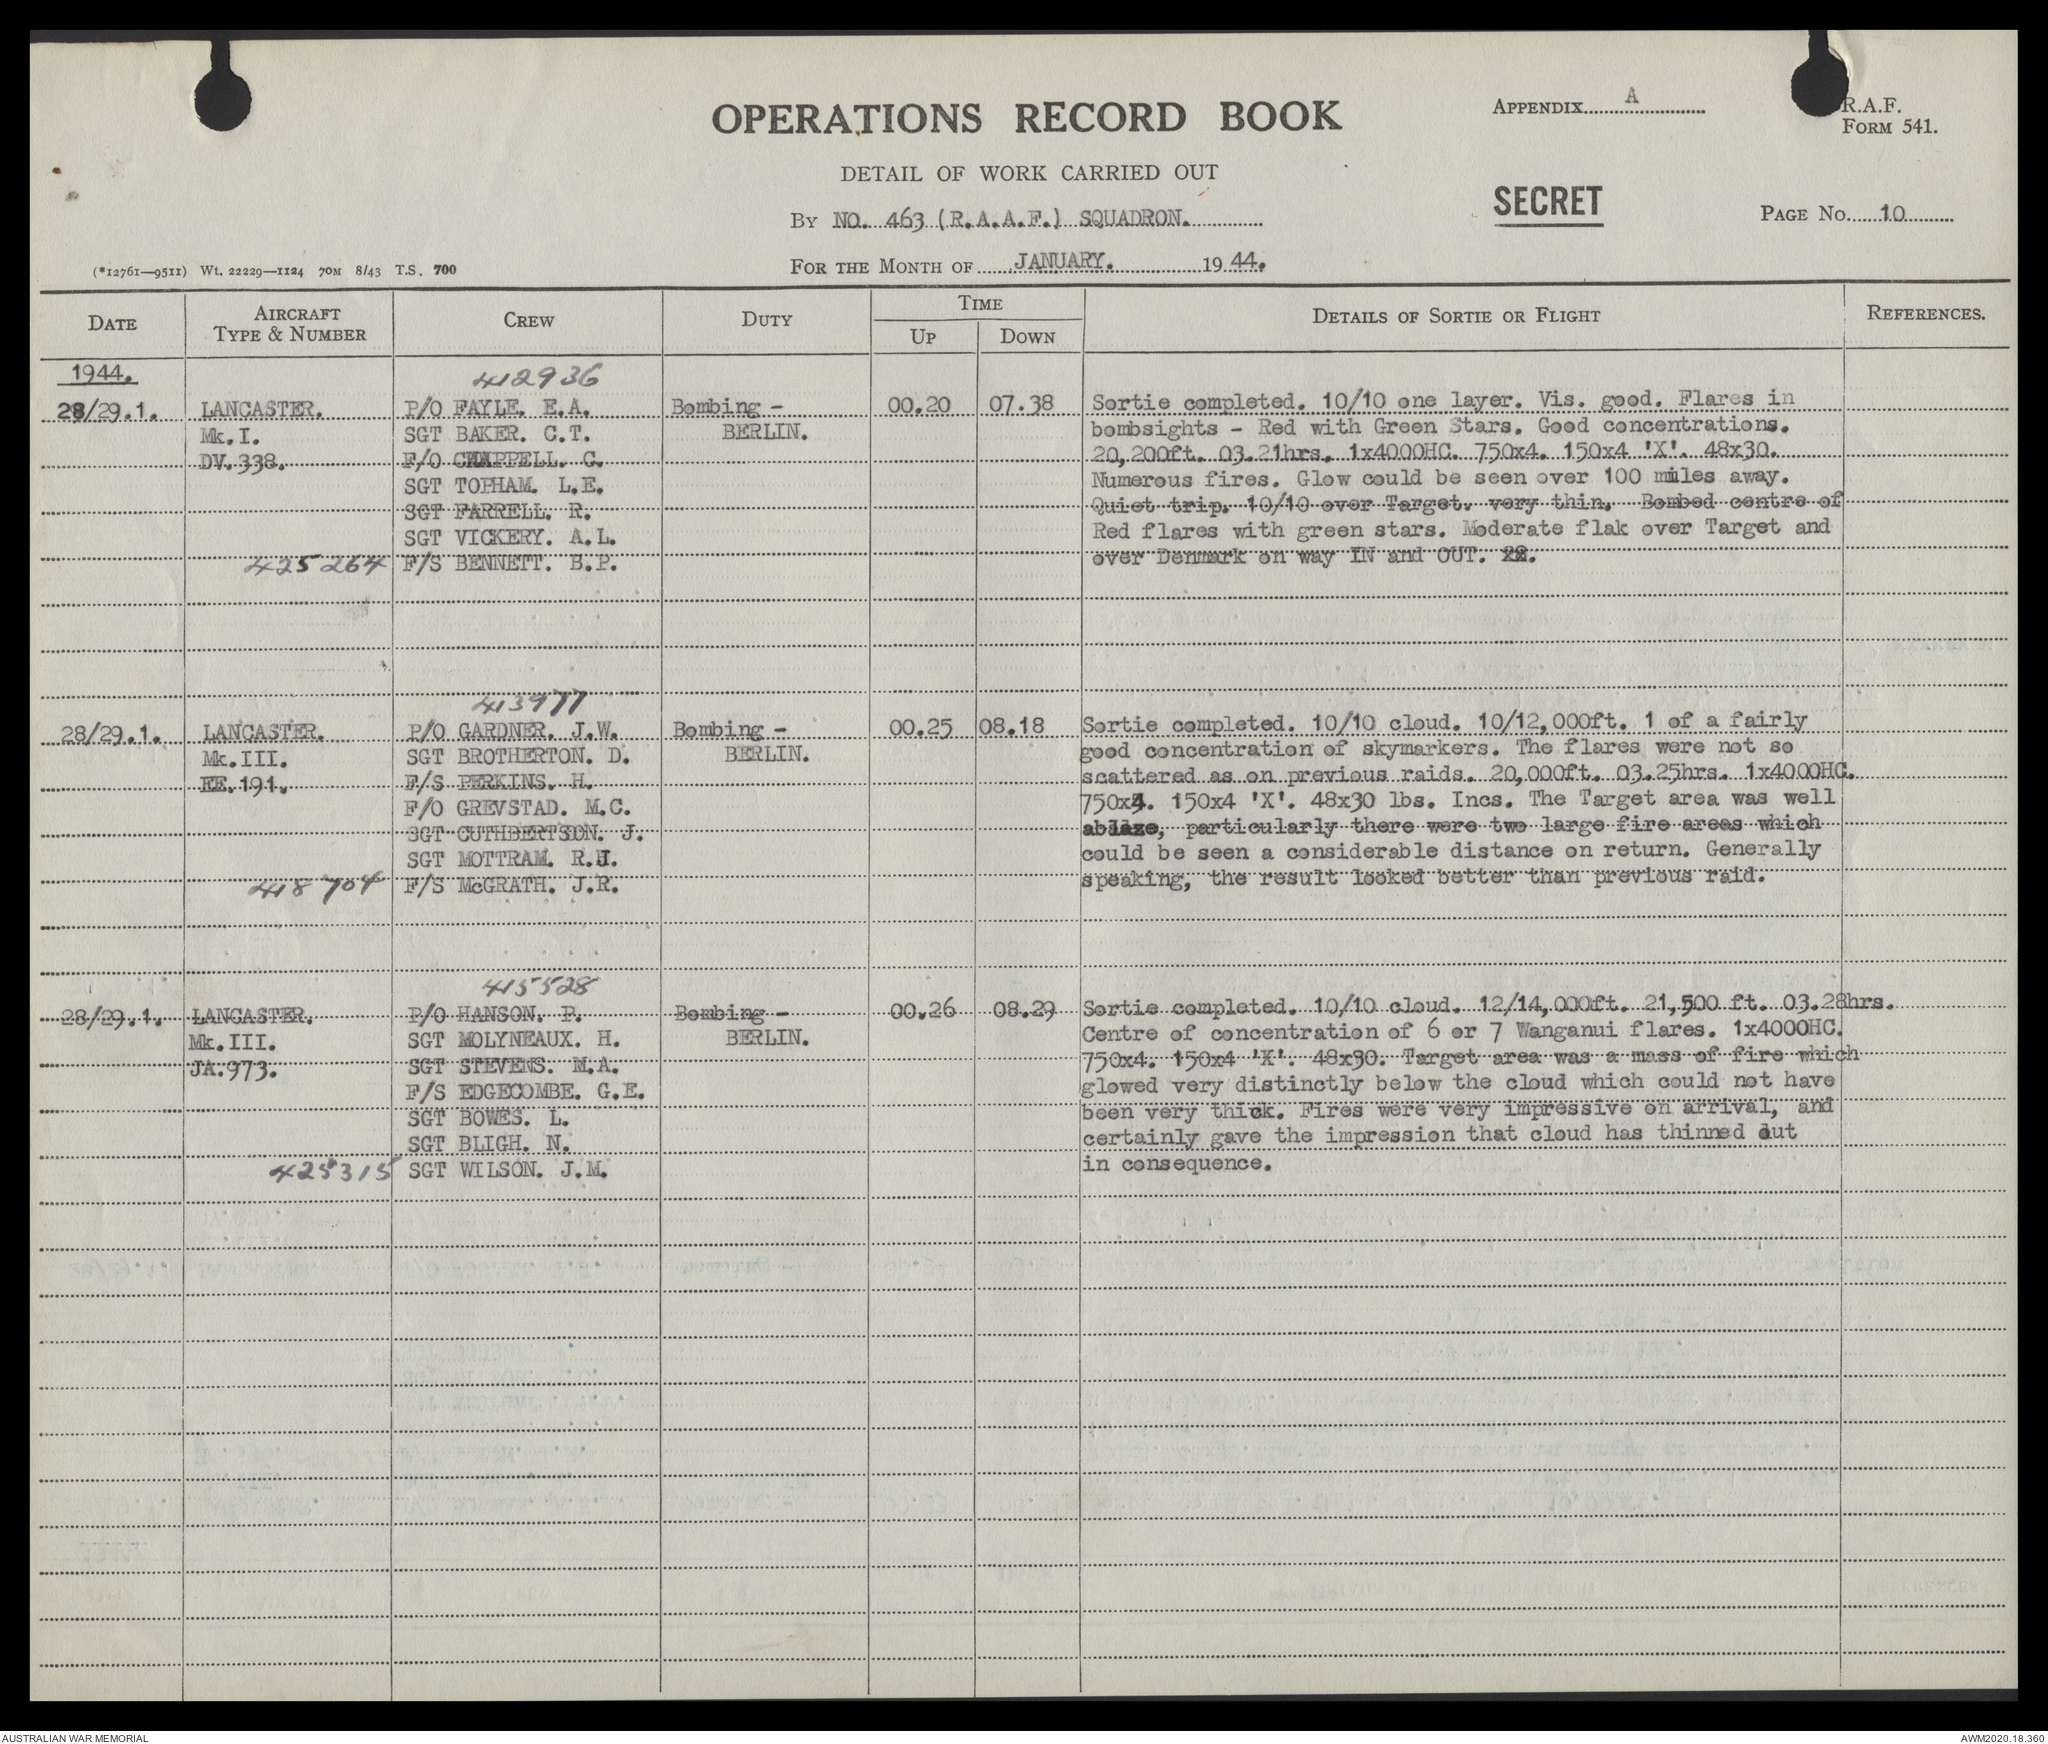 OPERATIONS RECORD BOOK
APPENDIX A
R.A.F.
FORM 541.
DETAIL OF WORK CARRIED OUT
SECRET
BY NO. 463 (R.A.A.F.) SQUADRON.
PAGE No. 10
(*12761—9511) Wt. 22229—1124 70M 8/43 T.S. 700
FOR THE MONTH OF JANUARY. 19 44.
DATE
AIRCRAFT
TYPE & NUMBER
CREW
DUTY
TIME
UP
DOWN
DETAILS OF SORTIE OR FLIGHT
REFERENCES.
1944.
412936
28/29.1.
LANCASTER.
Mk.I.
DV.338.
P/O FAYLE. E.A.
SGT BAKER. C.T.
F/O CHAPPELL. C.
SGT TOPHAM. L.E.
SGT FARRELL. R.
SGT VICKERY. A.L.
425264 F/S BENNETT. B.P.
Bombing -
BERLIN.
00.20
07.38
Sortie completed. 10/10 one layer. Vis. good. Flares in
bombsights - Red with Green Stars. Good concentrations.
20,200ft. 03.21hrs. 1x4000HC. 750x4. 150x4 'X'. 48x30.
Numerous fires. Glow could be seen over 100 miles away.
Quiet trip. 10/10 over Target. very thin. Bombed centre of
Red flares with green stars. Moderate flak over Target and
over Denmark on way IN and OUT.
413977
28/29.1.
LANCASTER.
Mk.III.
EE.191.
P/O GARDNER. J.W.
SGT BROTHERTON. D.
F/S PERKINS. H.
F/O GREVSTAD. M.C.
SGT CUTHBERTSON. J.
SGT MOTTRAM. R.J.
418704 F/S McGRATH. J.R.
Bombing -
BERLIN.
00.25
08.18
Sortie completed. 10/10 cloud. 10/12,000ft. 1 of a fairly
good concentration of skymarkers. The flares were not so
scattered as on previous raids. 20,000ft. 03.25hrs. 1x4000HC.
750x4. 150x4 'X'. 48x30 lbs. Incs. The Target area was well
ablaze, particularly there were two large fire areas which
could be seen a considerable distance on return. Generally
speaking, the result looked better than previous raid.
415528
28/29.1.
LANCASTER.
Mk.III.
JA.973.
P/O HANSON. P.
SGT MOLYNEAUX. H.
SGT STEVENS. M.A.
F/S EDGECOMBE. G.E.
SGT BOWES. L.
SGT BLIGH. N.
425315 SGT WILSON. J.M.
Bombing -
BERLIN.
00.26
08.29
Sortie completed. 10/10 cloud. 12/14,000ft. 21,500 ft. 03.28hrs.
Centre of concentration of 6 or 7 Wanganui flares. 1x4000HC.
750x4. 150x4 'X'. 48x30. Target area was a mass of fire which
glowed very distinctly below the cloud which could not have
been very thick. Fires were very impressive on arrival, and
certainly gave the impression that cloud has thinned out
in consequence.
AUSTRALIAN WAR MEMORIAL
AWM2020.18.360